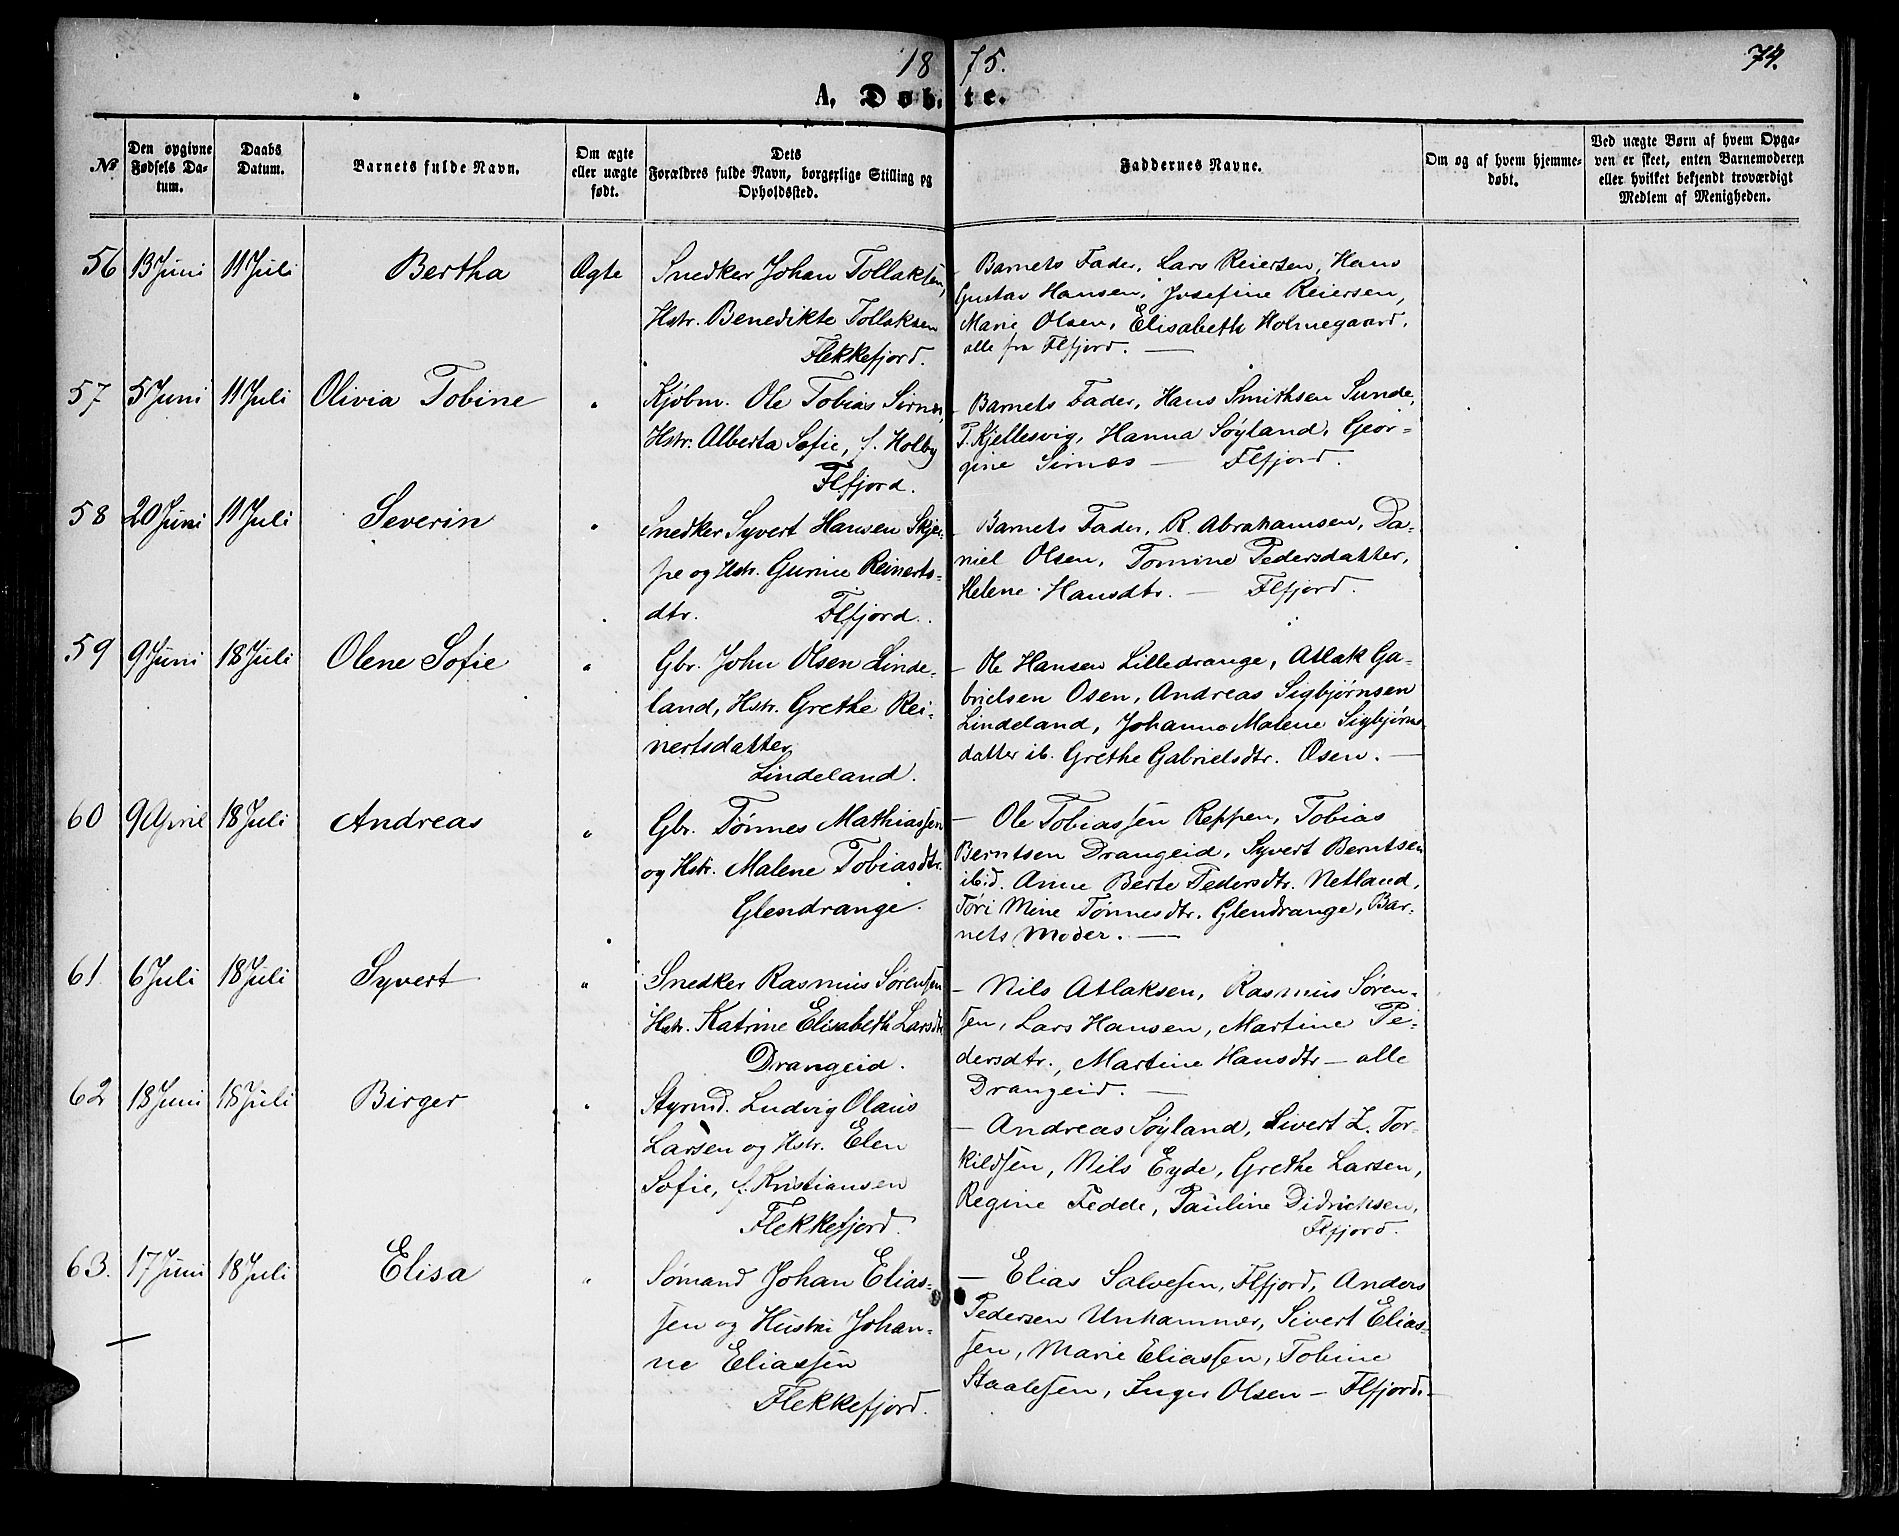 1875.
74.
A. Døbte.
No
Den opgivne Fødsels Datum.
Daabs Datum.
Barnets fulde Navn.
Om ægte eller uægte født.
Dets Forældres fulde Navn, borgerlige Stilling og Opholdssted.
Faddernes Navne.
Om og af hvem hjemmedøbt.
Ved uægte Børn af hvem Opgaven er skeet, enten Barnemoderen eller hvilket bekjendt troværdigt Medlem af Menigheden.
56 13 Juni 11 Juli Bertha Ægte
Snedker Johan Tollaksen,
Hstr. Benedikte Tollaksen
Flekkefjord.
- Barnets Fader, Lars Reiersen, Hans
Gustav Hansen, Josefine Reiersen,
Marie Olsen, Elisabeth Holmegaard,
alle fra Flfjord. —
57 5 Juni 11 Juli Olivia Tobine "
Kjøbm. Ole Tobias Sirnes,
Hstr. Alberta Sofie, f. Holby
Flfjord.
- Barnets Fader, Hans Smithsen Sunde,
P. Kjellesvig, Hanna Søyland, Geor-
gine Sirnæs — Flfjord.
58 20 Juni 11 Juli Severin "
Snedker Syvert Hansen Skjer-
pe og Hstr. Gurine Reinerts-
dtr. Flfjord.
- Barnets Fader, R. Abrahamsen, Da-
niel Olsen, Tomine Pedersdatter,
Helene Hansdtr. — Flfjord.
59 9 Juni 18 Juli Olene Sofie "
Gbr. John Olsen Linde-
land, Hstr. Grethe Rei-
nertsdatter
Lindeland.
- Ole Hansen Lilledrange, Atlak Ga-
brielsen Osen, Andreas Sigbjørnsen
Lindeland, Johanne Malene Sigbjørns-
datter ib. Grethe Gabrielsdtr. Osen. —
60 9 April 18 Juli Andreas "
Gbr. Tønnes Mathiassen
og Hstr. Malene Tobiasdtr.
Glendrange.
- Ole Tobiassen Reppen, Tobias
Berntsen Drangeid, Syvert Berntsen
ibid. Anne Berte Pedersdtr. Netland,
Tøri Mine Tønnesdtr. Glendrange, Bar-
nets Moder. —
61 6 Juli 18 Juli Syvert "
Snedker Rasmus Sørensen
Hstr. Katrine Elisabeth Larsdtr
Drangeid.
- Nils Atlaksen, Rasmus Søren-
sen, Lars Hansen, Martine Pe-
dersdtr., Martine Hansdtr — alle
Drangeid. —
62 18 Juni 18 Juli Birger "
Styrmd. Ludvig Olaus
Larsen og Hstr. Elen
Sofie, f. Kristiansen
Flekkefjord.
- Andreas Søyland, Sivert L. Tor-
kildsen, Nils Eyde, Grethe Larsen,
Regine Fedde, Pauline Didrichsen,
Flfjord.
63. 17 Juni 18 Juli Elisa "
Sømand Johan Elias-
sen og Hustru Johan-
ne Eliassen
Flekkefjord.
- Elias Salvesen, Flfjord, Anders
Pedersen Unhammer, Sivert Elias-
sen, Marie Eliassen, Tobine
Staalesen, Inger Olsen — Flfjord. —